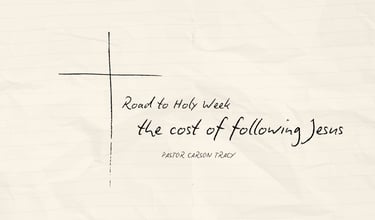 Road to Holy Week
the cost of following Jesus
PASTOR CARSON TRACY